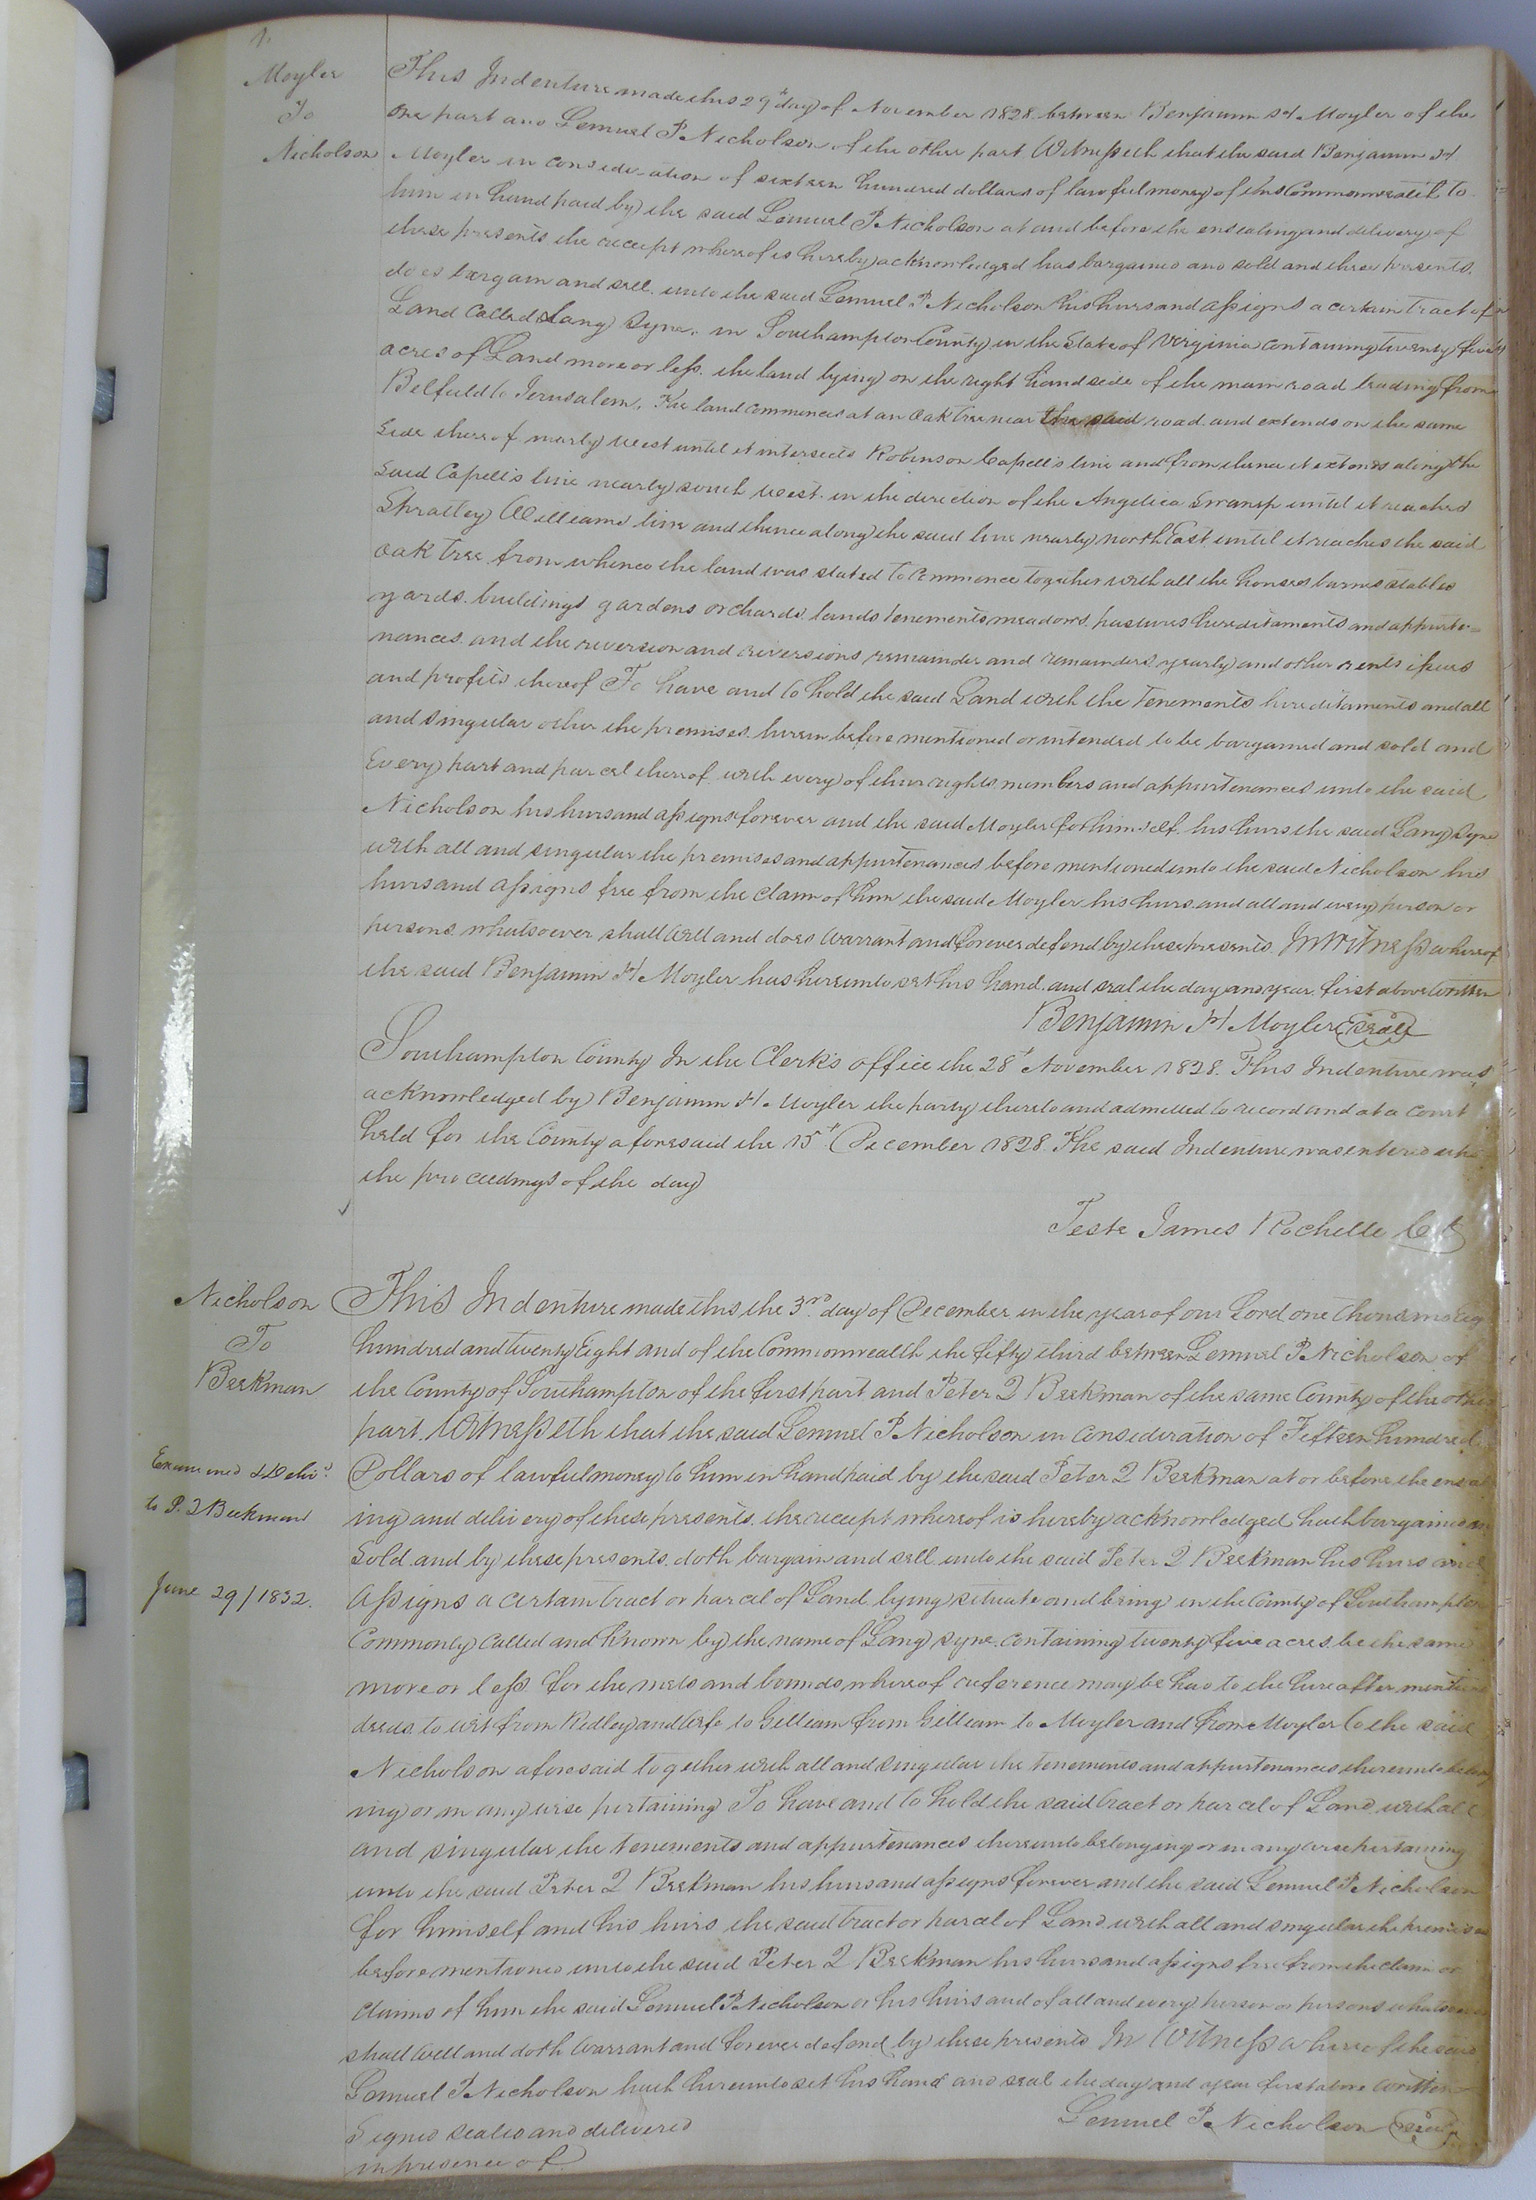 1.
Moyler
To
Nicholson
This Indenture made this 29th day of November 1828 between Benjamin H Moyler of the
one part and Lemuel P Nicholson of the other part Witnesseth that the said Benjamin H
Moyler in consideration of sixteen hundred dollars of lawful money of this Commonwealth to
him in hand paid by the said Lemuel P Nicholson at and before the ensealing and delivery of
these presents the receipt whereof is hereby acknowledged has bargained and sold and these presents
does bargain and sell unto the said Lemuel P Nicholson his heirs and assigns a certain tract of
Land Called Lang Syne, in Southampton County in the State of Virginia containing twenty five
acres of Land more or less. the land lying on the right hand side of the main road leading from
Belfield to Jerusalem. The land commences at an oak tree near the said road and extends on the same
side thereof nearly west until it intersects Robinson Capell's line and from thence it extends along the
said Capell's line nearly south west in the direction of the Angelica Swamp until it reaches
Williams line and thence along the said line nearly north East until it reaches the said
oak tree from whence the land was stated to commence together with all the houses barns stables
yards buildings gardens orchards lands tenements meadows pastures hereditaments and appurte=
nances and the reversion and reversions remainder and remainders yearly and other rents issues
and profits thereof To have and to hold the said Land with the tenements hereditaments and all
and singular other the premises herein before mentioned or intended to be bargained and sold and
Every part and parcel thereof with every of their rights members and appurtenances unto the said
Nicholson his heirs and assigns forever and the said Moyler for himself his heirs the said Lang Syne
with all and singular the premises and appurtenances before mentioned unto the said Nicholson his
heirs and assigns free from the claim of him the said Moyler his heirs and all and every person or
persons whatsoever shall will and does warrant and forever defend by these presents. In Witness whereof
the said Benjamin H Moyler has hereunto set his hand and seal the day and year first above written
Benjamin H Moyler seal
Southampton County In the Clerk's office the 28th November 1828. This Indenture was
acknowledged by Benjamin H Moyler the party thereto and admitted to record and at a court
held for the County aforesaid the 15th December 1828 The said Indenture was entered
the proceedings of the day
Teste James Rochelle
Nicholson
To
Beekman
Examined & Deliv.d
to P. 2 Beekman
June 29/1832.
This Indenture made this the 3rd day of December in the year of our Lord one thousand Eig
hundred and twenty Eight and of the Commonwealth the fifty third between Lemuel P Nicholson of
the County of Southampton of the first part and Peter 2 Beekman of the same County of the other
part. Witnesseth that the said Lemuel P Nicholson in consideration of Fifteen hundred
Dollars of lawful money to him in hand paid by the said Peter 2 Beekman at or before the enseal
ing and delivery of these presents the receipt whereof is hereby acknowledged hath bargained an
Sold and by these presents doth bargain and sell unto the said Peter 2 Beekman his heirs and
Assigns a certain tract or parcel of Land lying situate and being in the County of Southampton
Commonly Called and Known by the name of Lang Syne containing twenty five acres be the same
more or less for the mets and bounds whereof reference may be had to the hereafter mentioned
deeds to wit from Ridley and wife to Gilliam from Gilliam to Moyler and from Moyler to the said
Nicholson aforesaid together with all and singular the tenements and appurtenances thereunto belong
ing or in any wise pertaining To have and to hold the said tract or parcel of Land with all
and singular the tenements and appurtenances thereunto belonging or in any wise pertaining
unto the said Peter 2 Beekman his heirs and assigns forever and the said Lemuel P Nicholson
for himself and his heirs the said tract or parcel of Land with all and singular the premises
before mentioned unto the said Peter 2 Beekman his heirs and assigns free from the claim or
claims of him the said Lemuel P Nicholson or his heirs and of all and every person or persons whatsoever
shall will and doth warrant and forever defend by these presents In Witness whereof the said
Lemuel P Nicholson hath hereunto set his hand and seal the day and year first above written
Lemuel P Nicholson seal
Signed sealed and delivered
in presence of